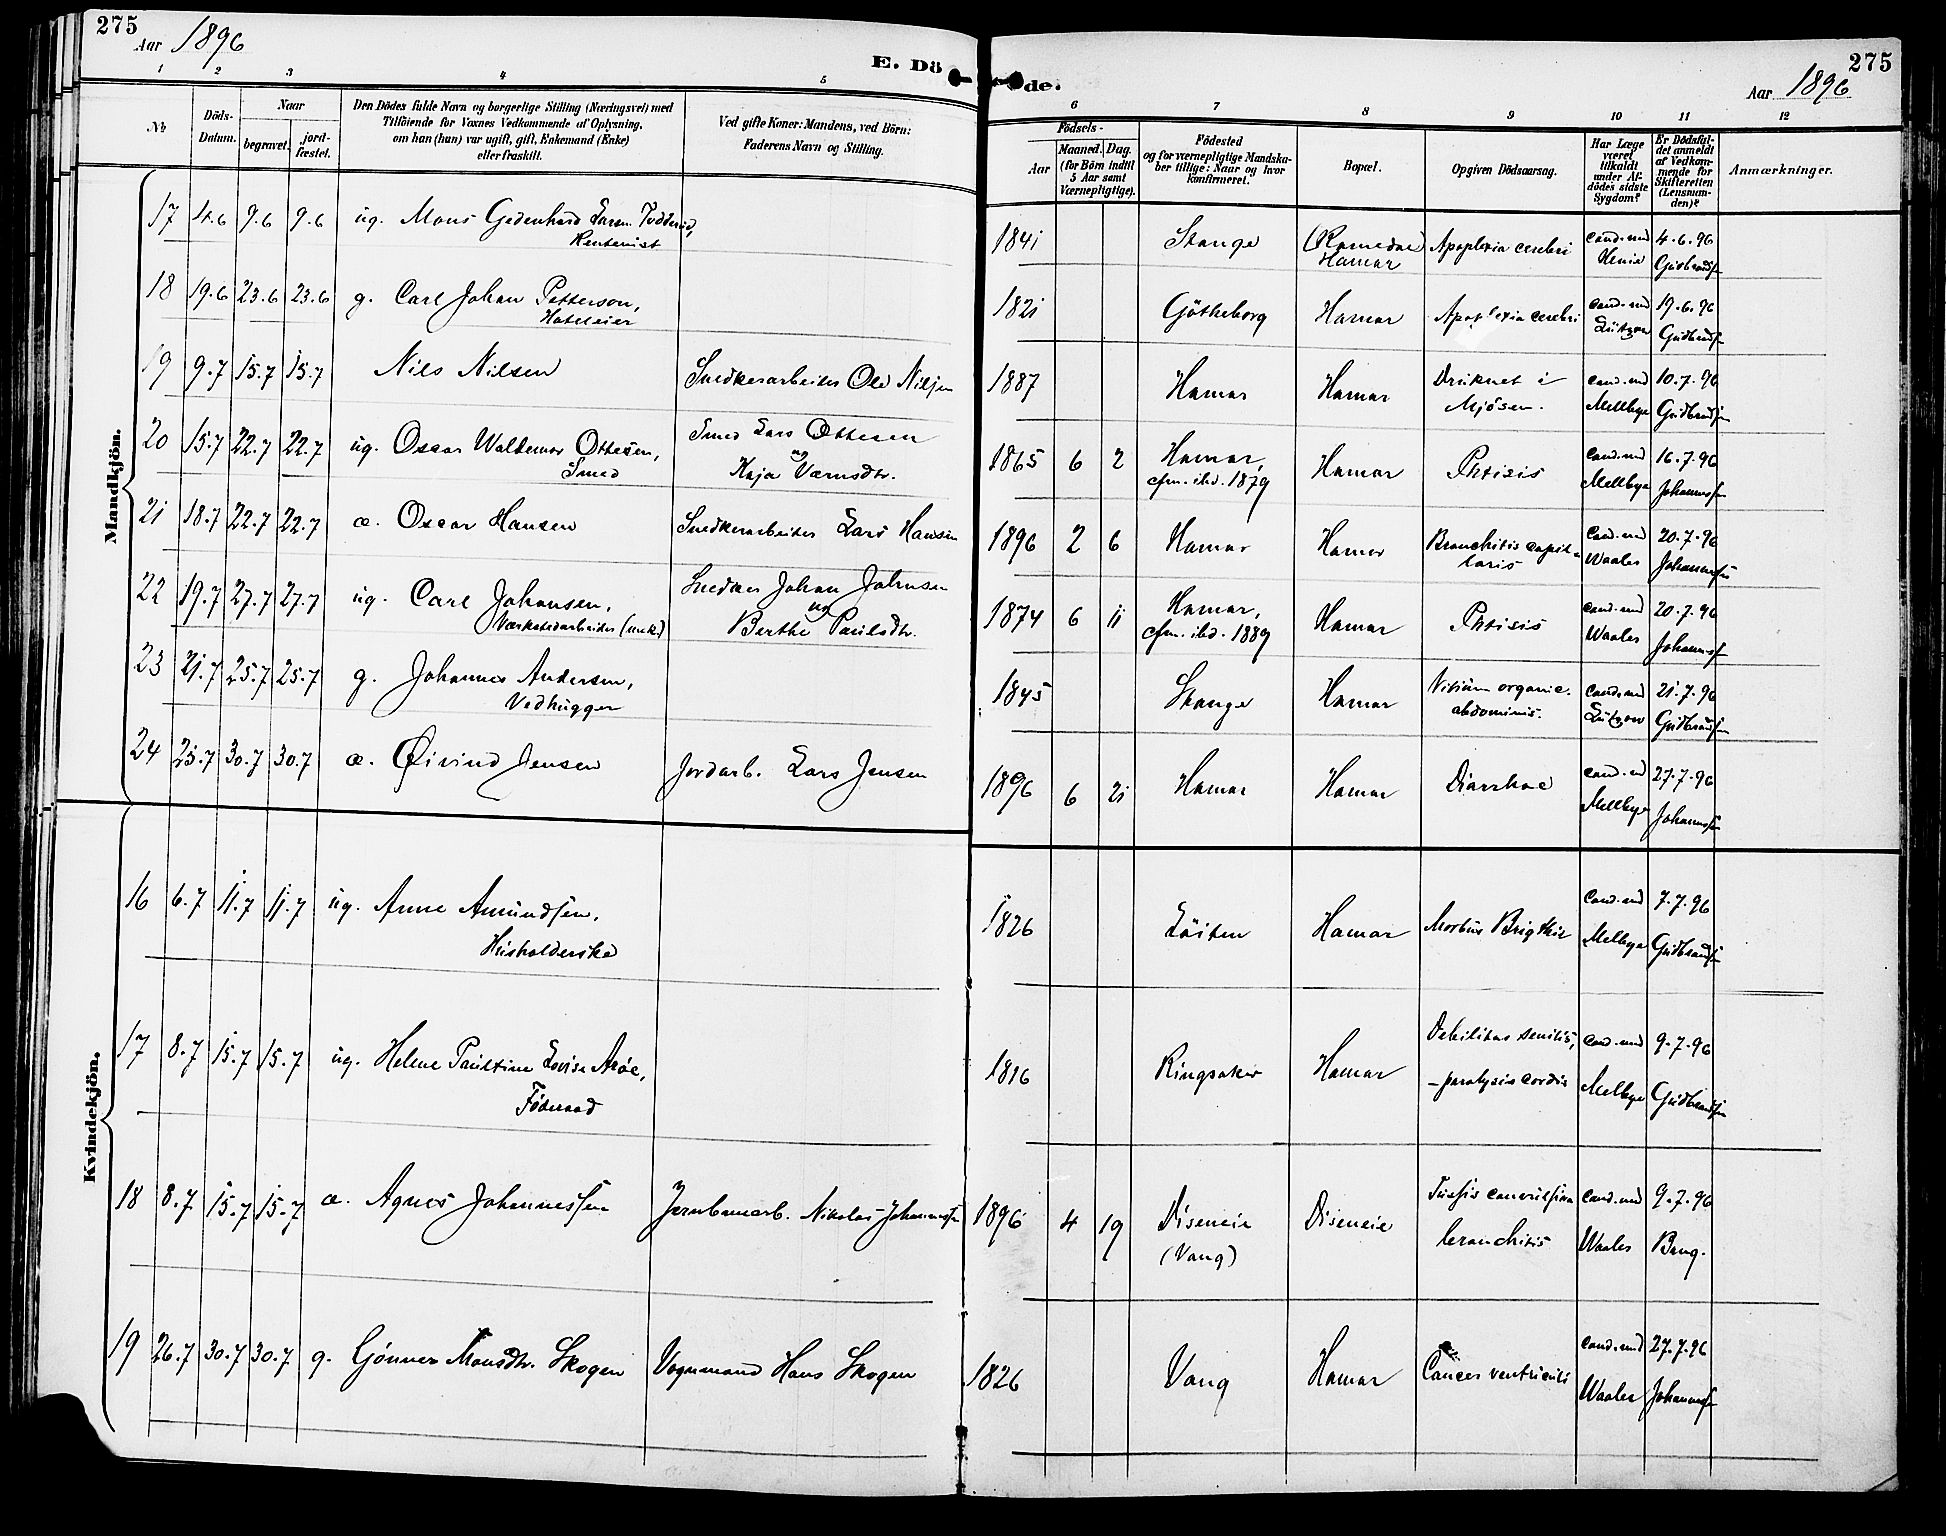 275
Aar 1896
E. Dö
1 2 3 4 5
No
Döds-Datum.
Naar
begravet.
jord-fæstet.
Den Dödes fulde Navn og borgerlige Stilling (Næringsvei) med
Tilföiende for Voxnes Vedkommende af Oplysning,
om han (hun) var ugift, gift, Enkemand (Enke)
eller fraskilt.
Ved gifte Koner: Mandens, ved Börn:
Faderens Navn og Stilling.
Mandkjön.
17 4.6 9.6 9.6 ug. Mons Gedenhard Larsen
Rentenist
18 19.6 23.6 23.6 g. Carl Johan Patterson,
Hoteleier
19 9.7 15.7 15.7 Nils Nilsen Snedkerarbeider Ole Nilsen
20 15.7 22.7 22.7 ug. Oscar Waldemar Ottesen, Smed Lars Ottesen
Smed og Kaja Værnsdtr.
21 18.7 22.7 22.7 æ. Oscar Hansen Snedkerarbeider Lars Hansen
22 19.7 27.7 27.7 ug. Carl Johansen, Snedker Johan Johnsen
Værkstedarbeider (mek.) og Berthe Paulsdtr.
23 21.7 25.7 25.7 g. Johannes Andersen,
Vedhugger
24 25.7 30.7 30.7 æ. Øivind Jensen Jordarb. Lars Jensen
Kvindekjön.
16 6.7 11.7 11.7 ug. Anne Amundsen,
Husholderske
17 8.7 15.7 15.7 ug. Helene Pauline Lovise Aröe,
Föderaad
18 8.7 15.7 15.7 æ. Agnes Johannessen Jernbanearb. Nikolai Johannessen
19 26.7 30.7 30.7 g. Gönner Monsdtr. Skogen Vognmand Hans Skogen
275
Aar 1896
de.
6 7 8 9 10 11 12
Födsels-
Aar
Maaned. Dag.
(for Börn indtil
5 Aar samt
Værnepligtige).
Födested
og for værnepligtige Mandska-
ber tillige: Naar og hvor
konfirmeret.
Bopæl.
Opgiven Dödsaarsag.
Har Læge
været
tilkaldt
under Af-
dödes sidste
Sygdom?
Er Dödsfal-
det anmeldt
af Vedkom-
mende for
Skifteretten
(Lensman-
den)?
Anmærkninger.
1841 Stange (Romedal) Apoplexia cerebri cand. med 4.6.96
Hamar Gudbrandsen
1821 Götheborg Hamar Apoplexia cerebri cand. med 19.6.96
Lützow Gudbrandsen
1887 Hamar Hamar Druknet i cand. med 10.7.96
Mjösen. Mellbye Gudbrandsen
1865 6 2 Hamar, Hamar Phtisis cand. med 16.7.96
cfm. ibd. 1879 Mellbye Johannessen
1896 2 6 Hamar Hamar Bronchitis capil- cand. med 20.7.96
laris Waaler Johannessen
1874 6 11 Hamar, Hamar Phtisis cand. med 20.7.96
cfm. ibd. 1889 Waaler Johannessen
1845 Stange Hamar Vitium organic. cand. med 21.7.96
abdominis. Lützow Gudbrandsen
1896 6 21 Hamar Hamar Diarrhoe cand. med 27.7.96
Mellbye Johannessen
1826 Löiten Hamar Morbus Brigthii cand. med 7.7.96
Melbye Gudbrandsen
1816 Ringsaker Hamar Debilitas senilis, cand. med 9.7.96
- paralysis cordis Melbye Gudbrandsen
1896 4 19 Diseneie Diseneie Tussis convulsiva cand. med 9.7.96
(Vang) bronchitis Waaler Brug.
1826 Vang Hamar Cancer ventriculi cand. med 27.7.96
Waaler Johannessen